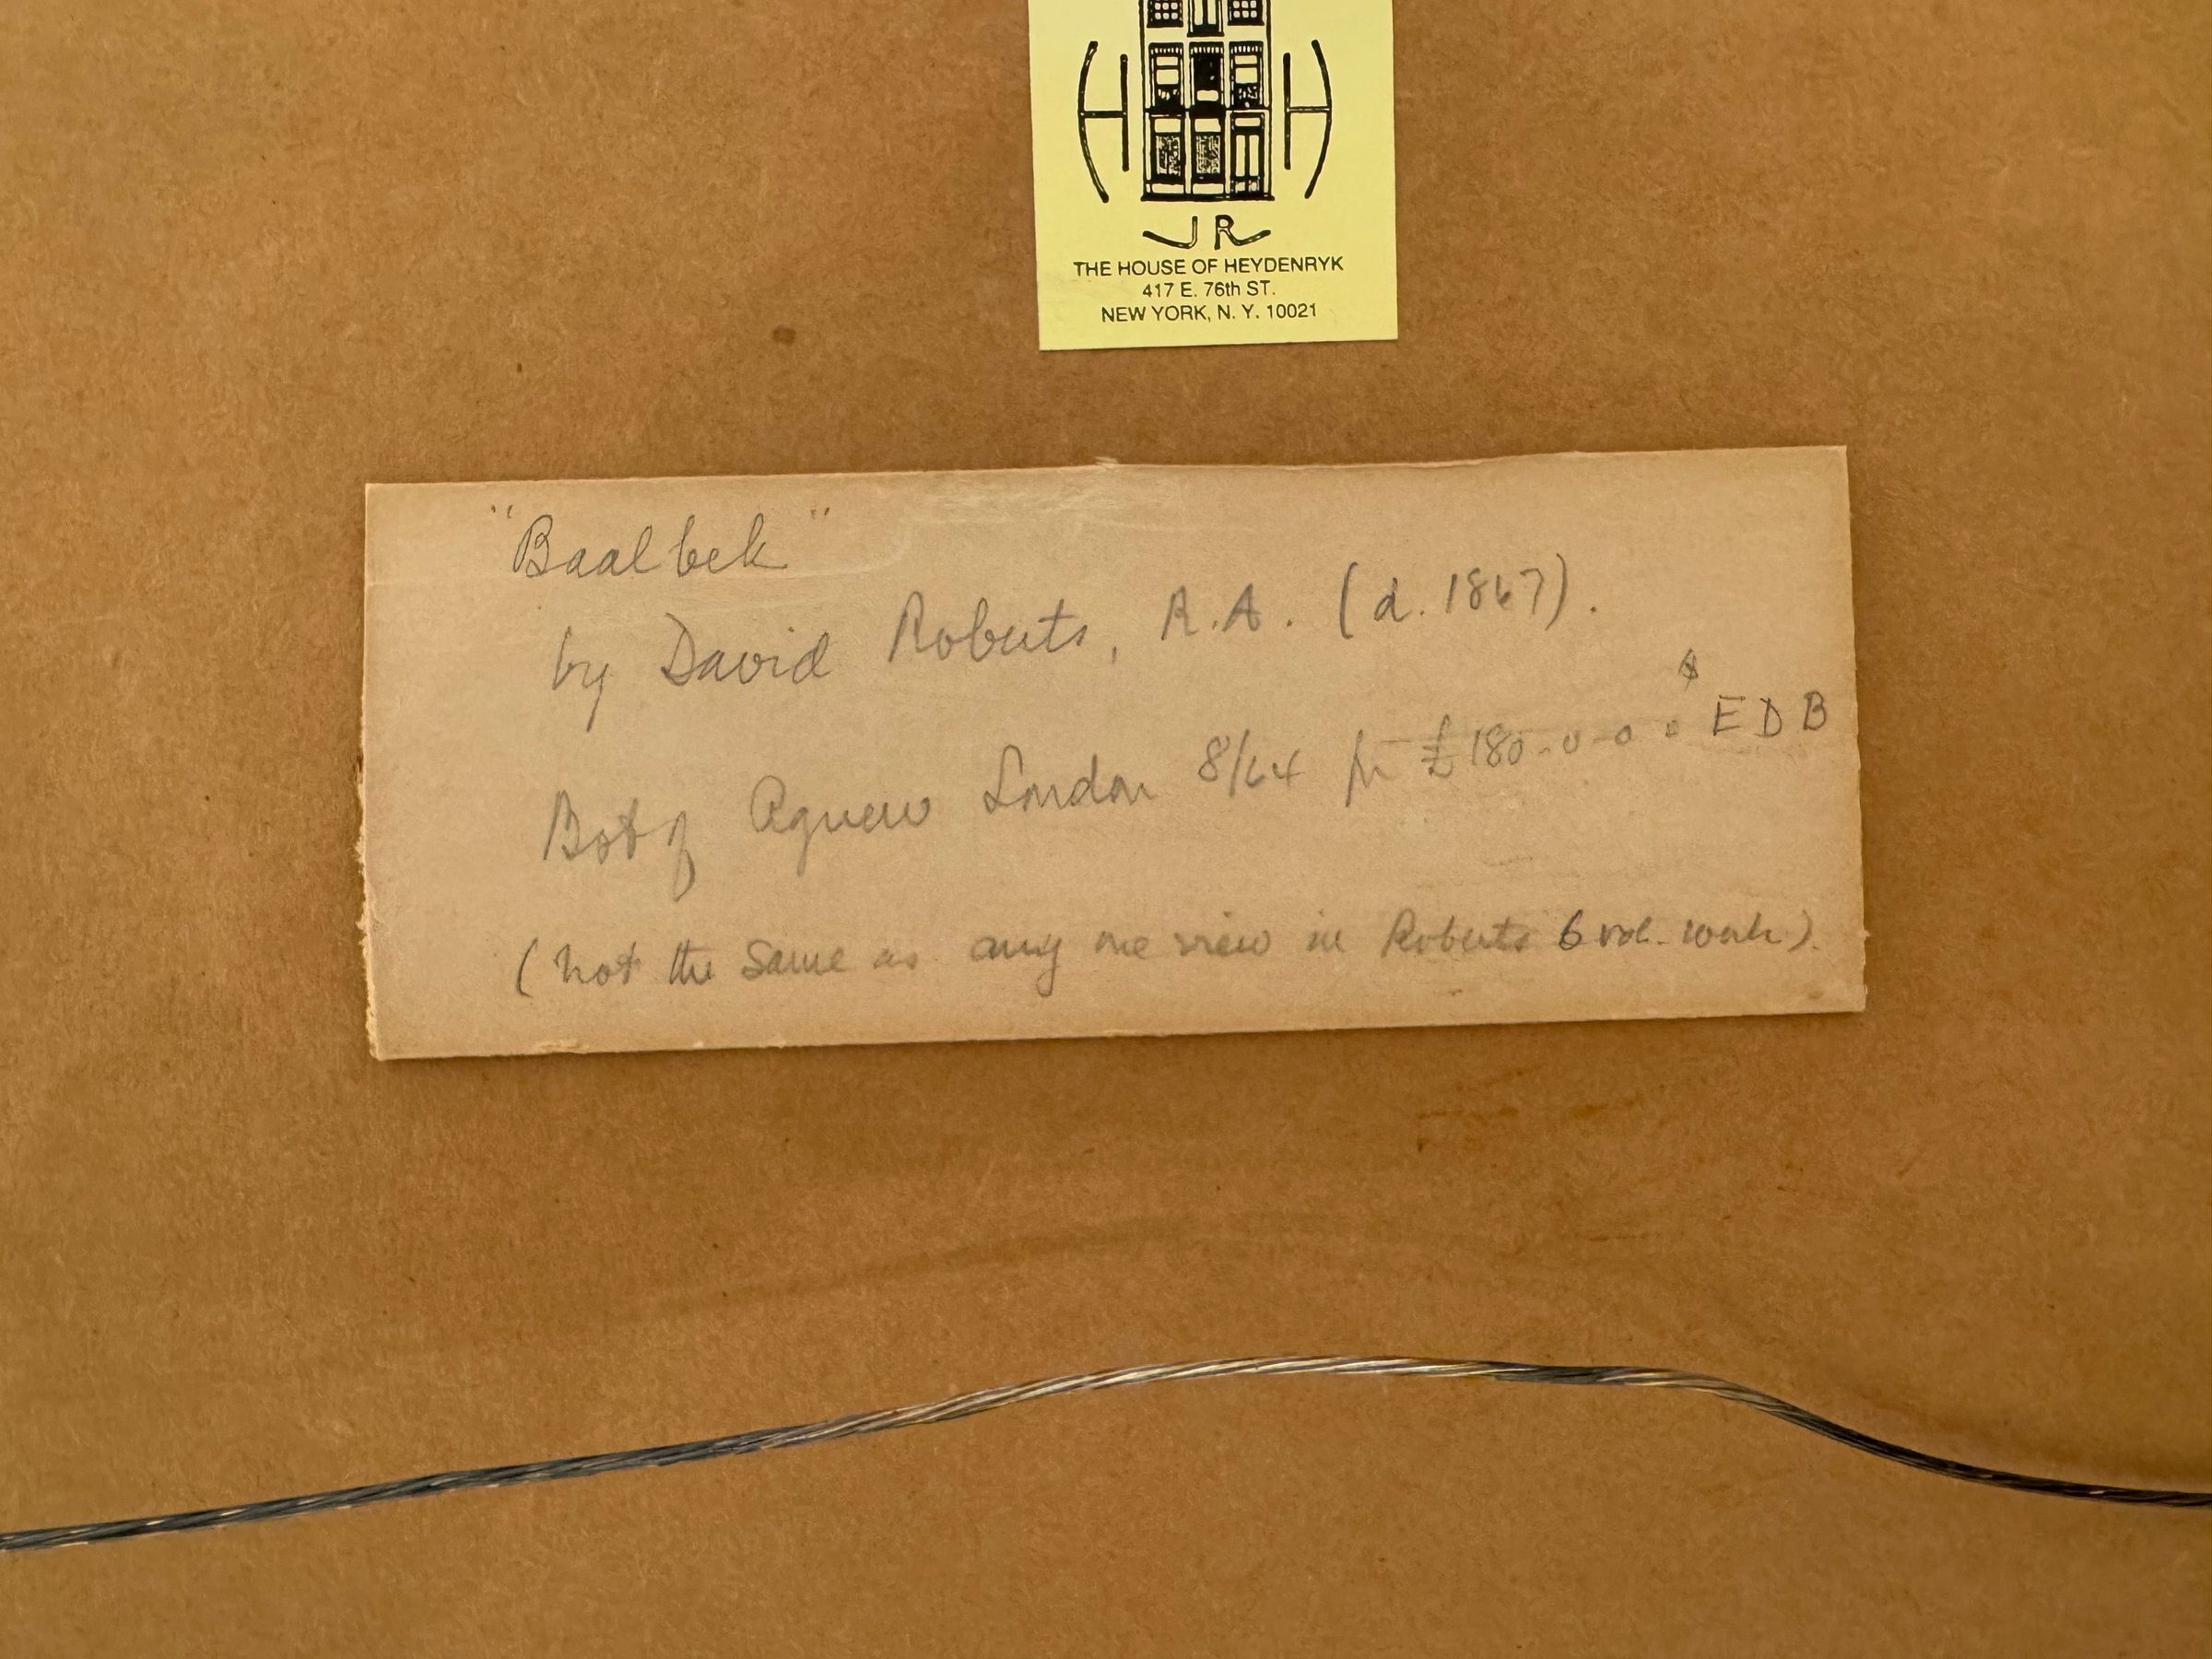 H H
J R
THE HOUSE OF HEYDENRYK
417 E. 76th ST.
NEW YORK, N. Y. 10021
"Baalbek"
by David Roberts, R.A. (d. 1867).
Bot of Agnew London 8/64 for £180-0-0. EDB
(not the same as any one view in Roberts 6 vol. work).